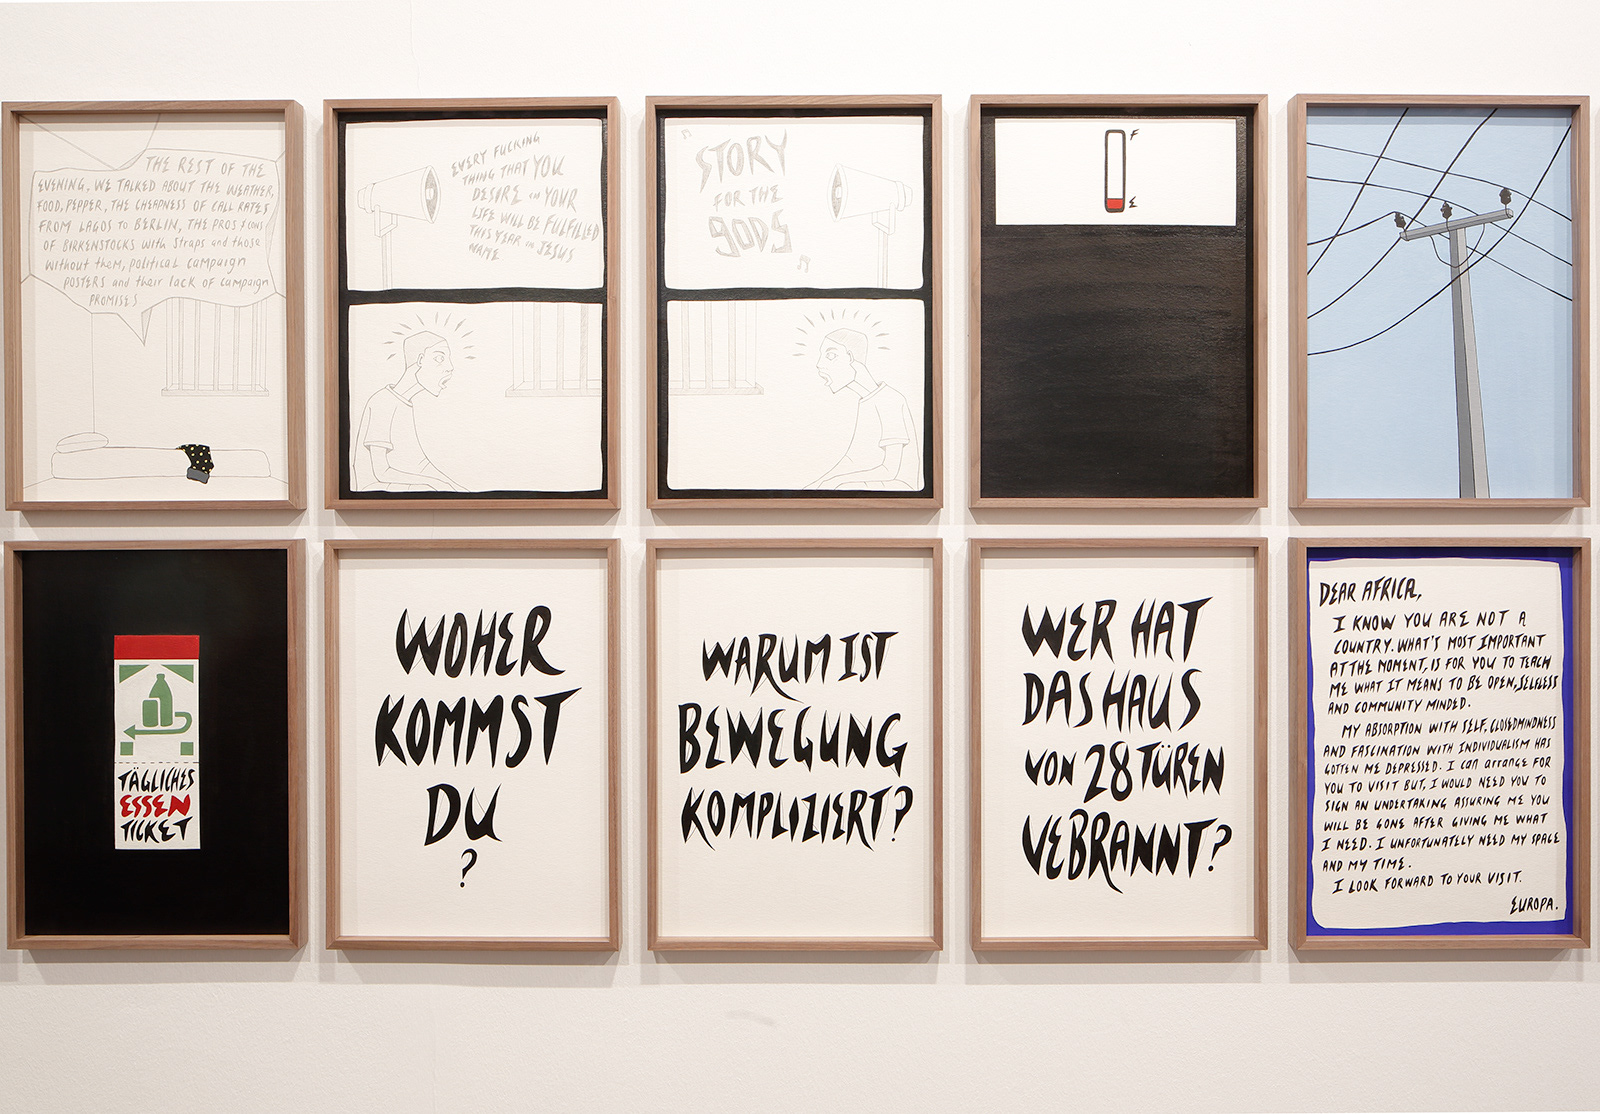 THE REST OF THE
EVENING, WE TALKED ABOUT THE WEATHER,
FOOD, PEPPER, THE CHEAPNESS OF CALL RATES
FROM LAGOS TO BERLIN, THE PROS & CONS
OF BIRKENSTOCKS with STRAPS and those
without them, political campaign
POSTERS and their lack of campaign
PROMISES
EVERY FUCKING
THING THAT YOU
DESIRE in YOUR
LIFE WILL BE FULFILLED
THIS YEAR in JESUS
NAME
STORY
FOR THE
gODS
F
E
TÄGLICHES
ESSEN
TICKET
WOHER
KOMMST
DU
?
WARUM IST
BEWEGUNG
KOMPLIZIERT?
WER HAT
DAS HAUS
VON 28 TÜREN
VEBRANNT?
DEAR AFRICA,
I KNOW YOU ARE NOT A
COUNTRY. WHAT'S MOST IMPORTANT
AT THE MOMENT, IS FOR YOU TO TEACH
ME WHAT IT MEANS TO BE OPEN, SELFLESS
AND COMMUNITY MINDED.
MY ABSORPTION WITH SELF, CLOSEDMINDNESS
AND FASCINATION WITH INDIVIDUALISM HAS
GOTTEN ME DEPRESSED. I can arrange FOR
YOU TO VISIT BUT, I WOULD NEED YOU TO
SIGN AN UNDERTAKING ASSURING ME YOU
WILL BE GONE AFTER GIVING ME WHAT
I NEED. I UNFORTUNATELY NEED MY SPACE
AND MY TIME.
I LOOK FORWARD TO YOUR VISIT.
EUROPA.